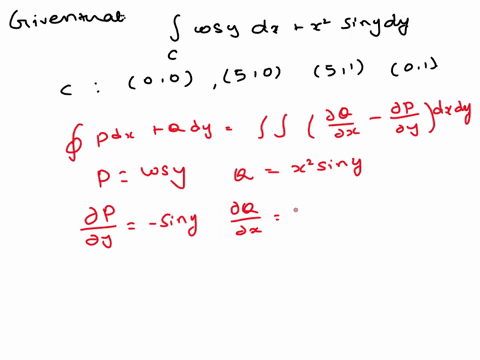 Giventhat ∫ cosy dx + x² sinydy
C
C : (0,0) , (5,0) (5,1) (0,1)
∮ Pdx + Qdy = ∫∫ (∂Q/∂x − ∂P/∂y) dxdy
P = cosy Q = x² siny
∂P/∂y = -siny ∂Q/∂x =